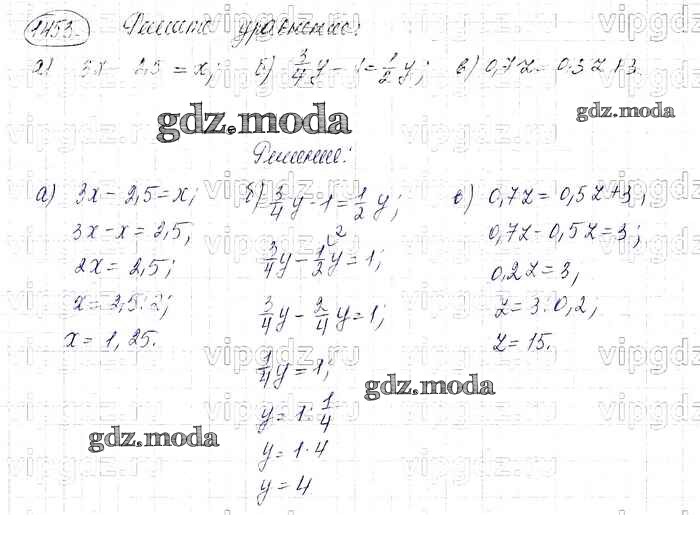 1453. Решите уравнение:
а) 3x - 2,5 = x; б) 3/4 y - 1 = 1/2 y; в) 0,7z = 0,5z + 3.
gdz.moda
gdz.moda
Решение:
а) 3x - 2,5 = x;
3x - x = 2,5;
2x = 2,5;
x = 2,5 : 2;
x = 1,25.
б) 3/4 y - 1 = 1/2 y;
3/4 y - 1/2 y = 1;
3/4 y - 2/4 y = 1;
1/4 y = 1;
y = 1 : 1/4
y = 1 · 4
y = 4
в) 0,7z = 0,5z + 3;
0,7z - 0,5z = 3;
0,2z = 3,
z = 3 : 0,2;
z = 15.
gdz.moda
gdz.moda
vipgdz.ru